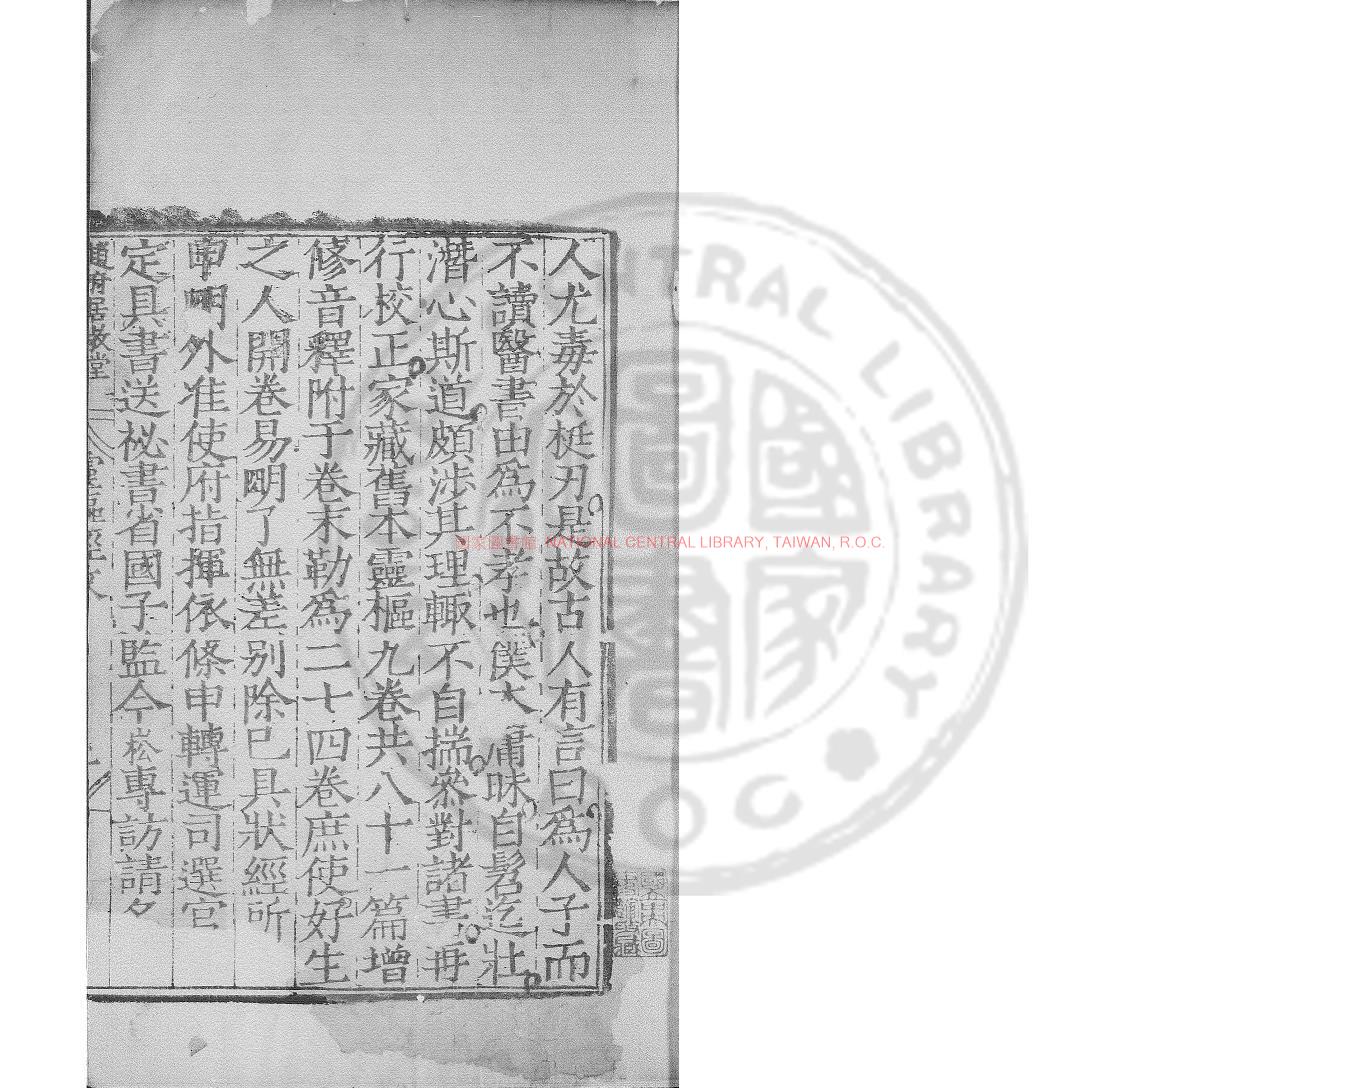 人尤毒於梃刃是故古人有言曰為人子而
不讀醫書由為不孝也僕本庸昧自髫迄壯
潛心斯道頗涉其理輙不自揣叅對諸書再
行校正家藏舊本靈樞九卷共八十一篇增
修音釋附于卷末勒為二十四卷庶使好生
之人開卷易明了無差别除已具狀經所
申明外准使府指揮依條申轉運司選官
定具書送祕書省國子監今崧專訪請
趙府居敬堂
國家圖書館 NATIONAL CENTRAL LIBRARY, TAIWAN, R.O.C.